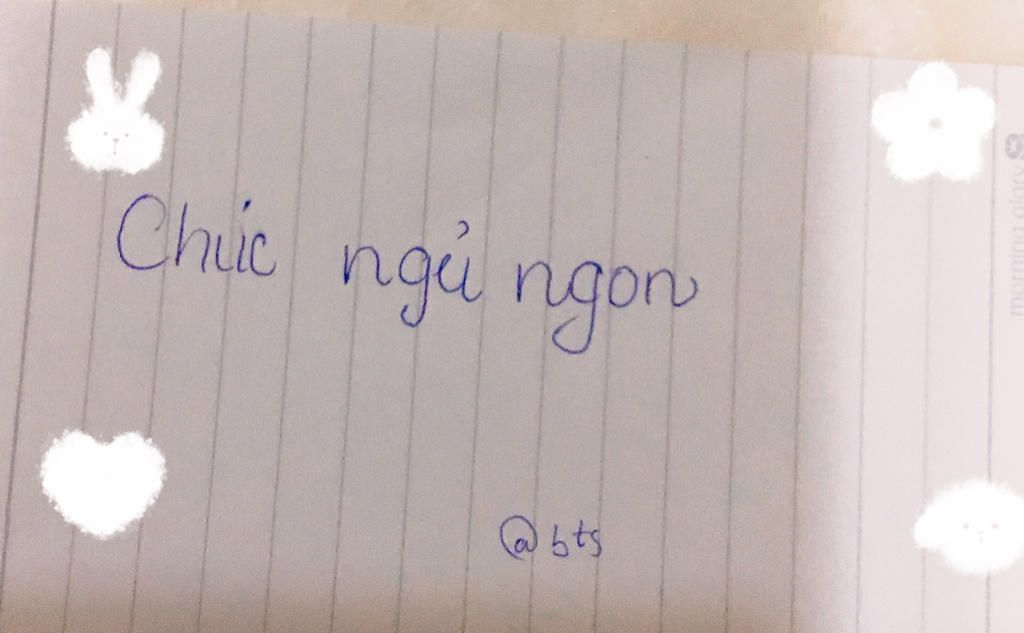 Chúc ngủ ngon
@bts
morning glory